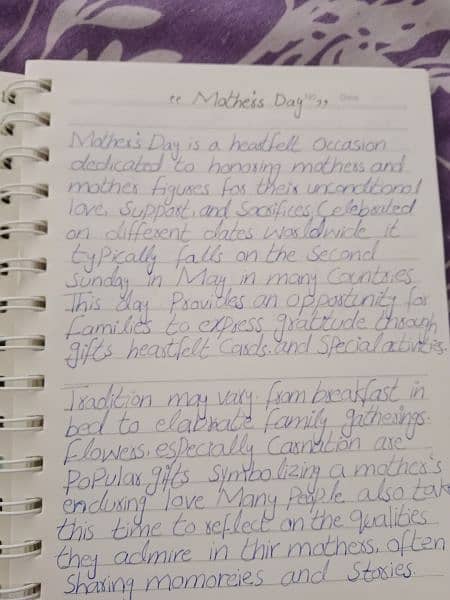 "Mother's Day"
Mother's Day is a heartfelt occasion
dedicated to honoring mothers and
mother figures for their unconditional
love, Support, and Sacrifices, Celebrated
on different dates worldwide it
typically falls on the Second
Sunday in May in many Countries
This day Provides an opportunity for
families to express gratitude through
gifts heartfelt Cards. and Special activities.
Tradition may vary from breakfast in
bed to elabrate family gatherings.
Flowers, especially Carnation are
popular gifts Symbolizing a mother's
enduring love Many People also take
this time to reflect on the qualities
they admire in thir mothers, often
Sharing momoreies and Stories.